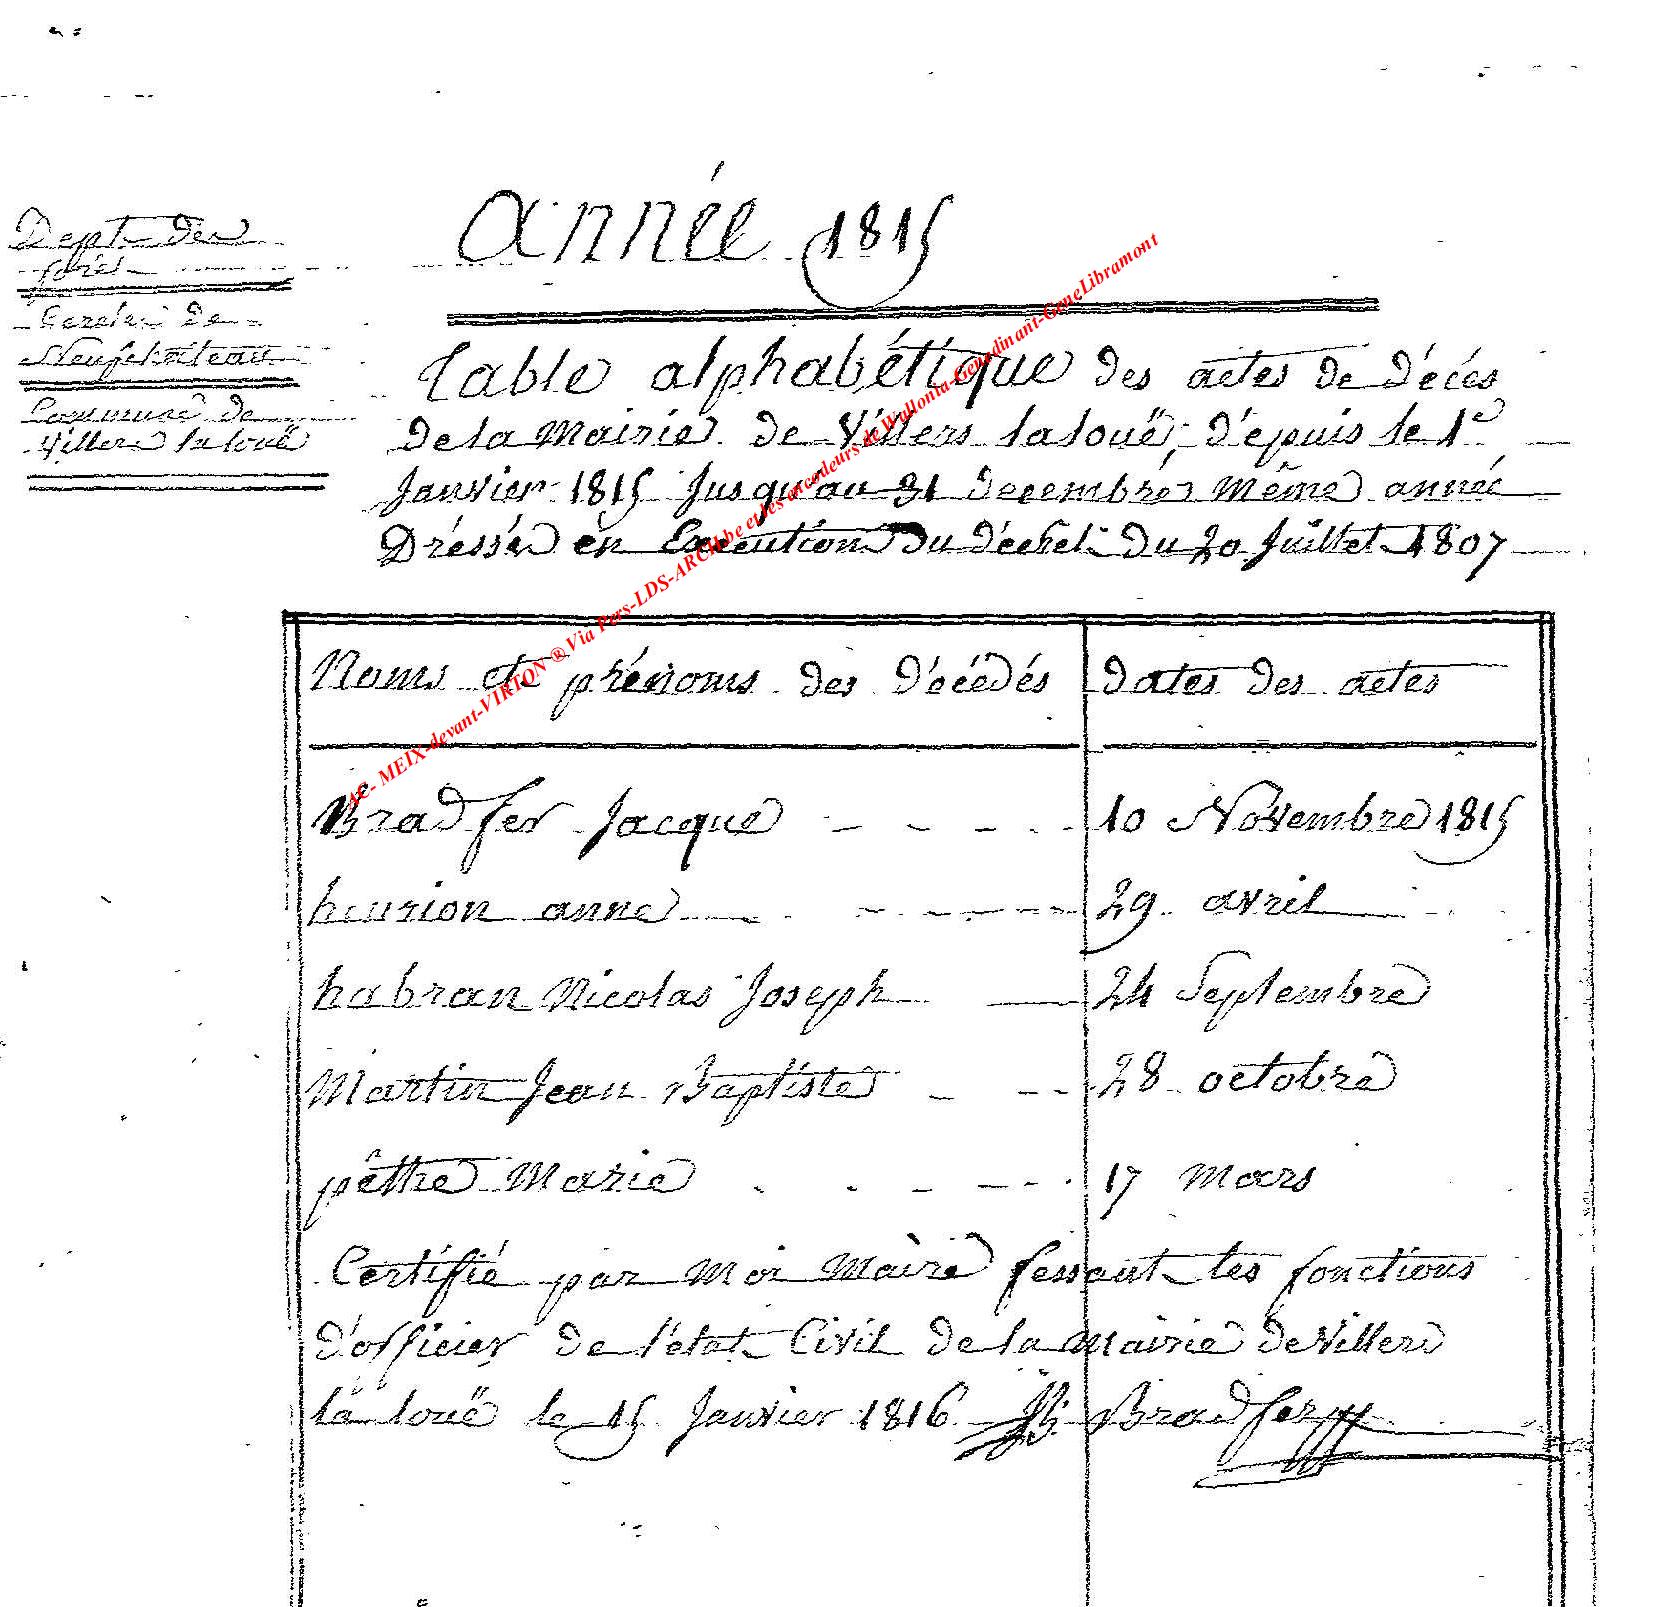 Dept des
forets
Cercle de
Neufchateau
Commune de
Villers la louë
année 1815
Table alphabétique des actes de décés
de la Mairie de Villers la louë, dépuis le 1er
Janvier 1815 Jusqu'au 31 decembre même année
Dréssée en Execution du décret du 20 Juillet 1807
Noms et prénoms des décédés dates des actes
Bradfer Jacque 10 Novembre 1815
henrion anne 29 avril
habran Nicolas Joseph 24 Septembre
Martin Jean Baptiste 28 octobre
pêthe Marie 17 mars
Certifié par Moi Maire fessant les fonctions
d'officier de l'état Civil de la Mairie de Villers
la louë le 15 Janvier 1816 JB Bradfer
AC- MEIX-devant-VIRTON ® Via Pers-LDS-ARCH.be et les encodeurs de Wallonia-Genedinant-GeneLibramont